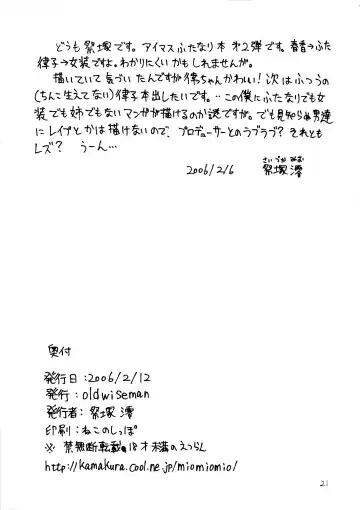 どうも祭塚です。アイマスふたなり本 オ2弾です。春香→ふた
律子→女装ですよ。わかりにくいかもしれませんが。
描いていて気づいたんですが律っちゃんかわいい！次はふつうの
(ちんこ生えてない)律子本出したいです。‥この僕にふたなりでも女
装でも姉でもないマンガが描けるのか謎ですが。でも見知らぬ男達
にレイプとかは描けないので、プロデューサーとのラブラブ？それとも
レズ？ うーん…
さいづか みお
2006/2/6 祭塚 澪
奥付
発行日：2006/2/12
発行：oldwiseman
発行者：祭塚 澪
印刷：ねこのしっぽ
※ 禁無断転載。18才未満のえつらん
http://kamakura.cool.ne.jp/miomiomio/
21